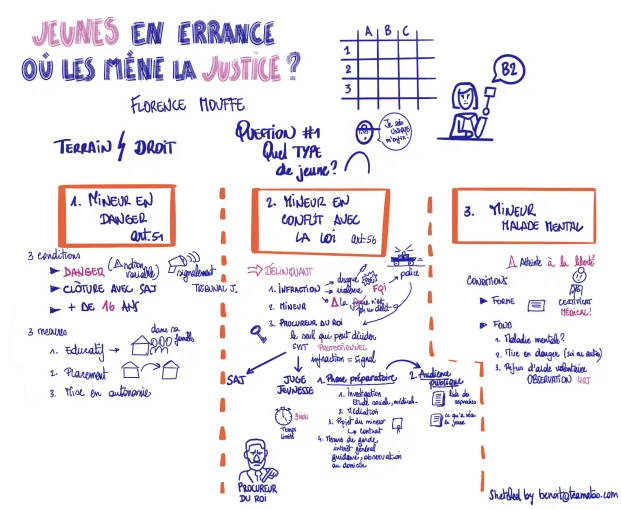 JEUNES EN ERRANCE
OÙ LES MÈNE LA JUSTICE ?
FLORENCE MOUFFE
A B C
1
2
3
B2
TERRAIN DROIT
QUESTION #1
Quel TYPE
de jeune ?
Je suis
UNIQUE
m'enfin!
1. MINEUR EN
DANGER
art.51
3 conditions
DANGER (notion variable)
CLÔTURE AVEC SAJ
+ DE 16 ANS
signalement
TRIBUNAL J.
3 mesures
1. Educatif
dans sa
famille
2. Placement
3. Mise en autonomie
2. MINEUR EN
CONFLIT AVEC
LA LOI art.56
DÉLINQUANT
1. INFRACTION
drogue
violence FQI
police
2. MINEUR
la fugue n'est
pas un délit
3. PROCUREUR DU ROI
le seul qui peut décider
SUIT PROTECTIONNEL
infraction = signal
SAJ
JUGE
JEUNESSE
9 mois
Temps
limité
PROCUREUR
DU ROI
1. Phase préparatoire
1. Investigation
Etude sociale, médical..
2. Médiation
3. Projet du mineur
contrat
4. Mesures de garde
intérêt général
guidance, observation
au domicile
2. Audience
publique
liste des
reproches
ce qu'a vécu
le jeune
3. MINEUR
MALADE MENTAL
Atteinte à la liberté
CONDITIONS
FORME
CERTIFICAT
MÉDICAL!
FOND
1. Maladie mentale?
2. Mise en danger (soi ou autre)
3. Refus d'aide volontaire
OBSERVATION 40J
Sketched by benoit@teamatoo.com